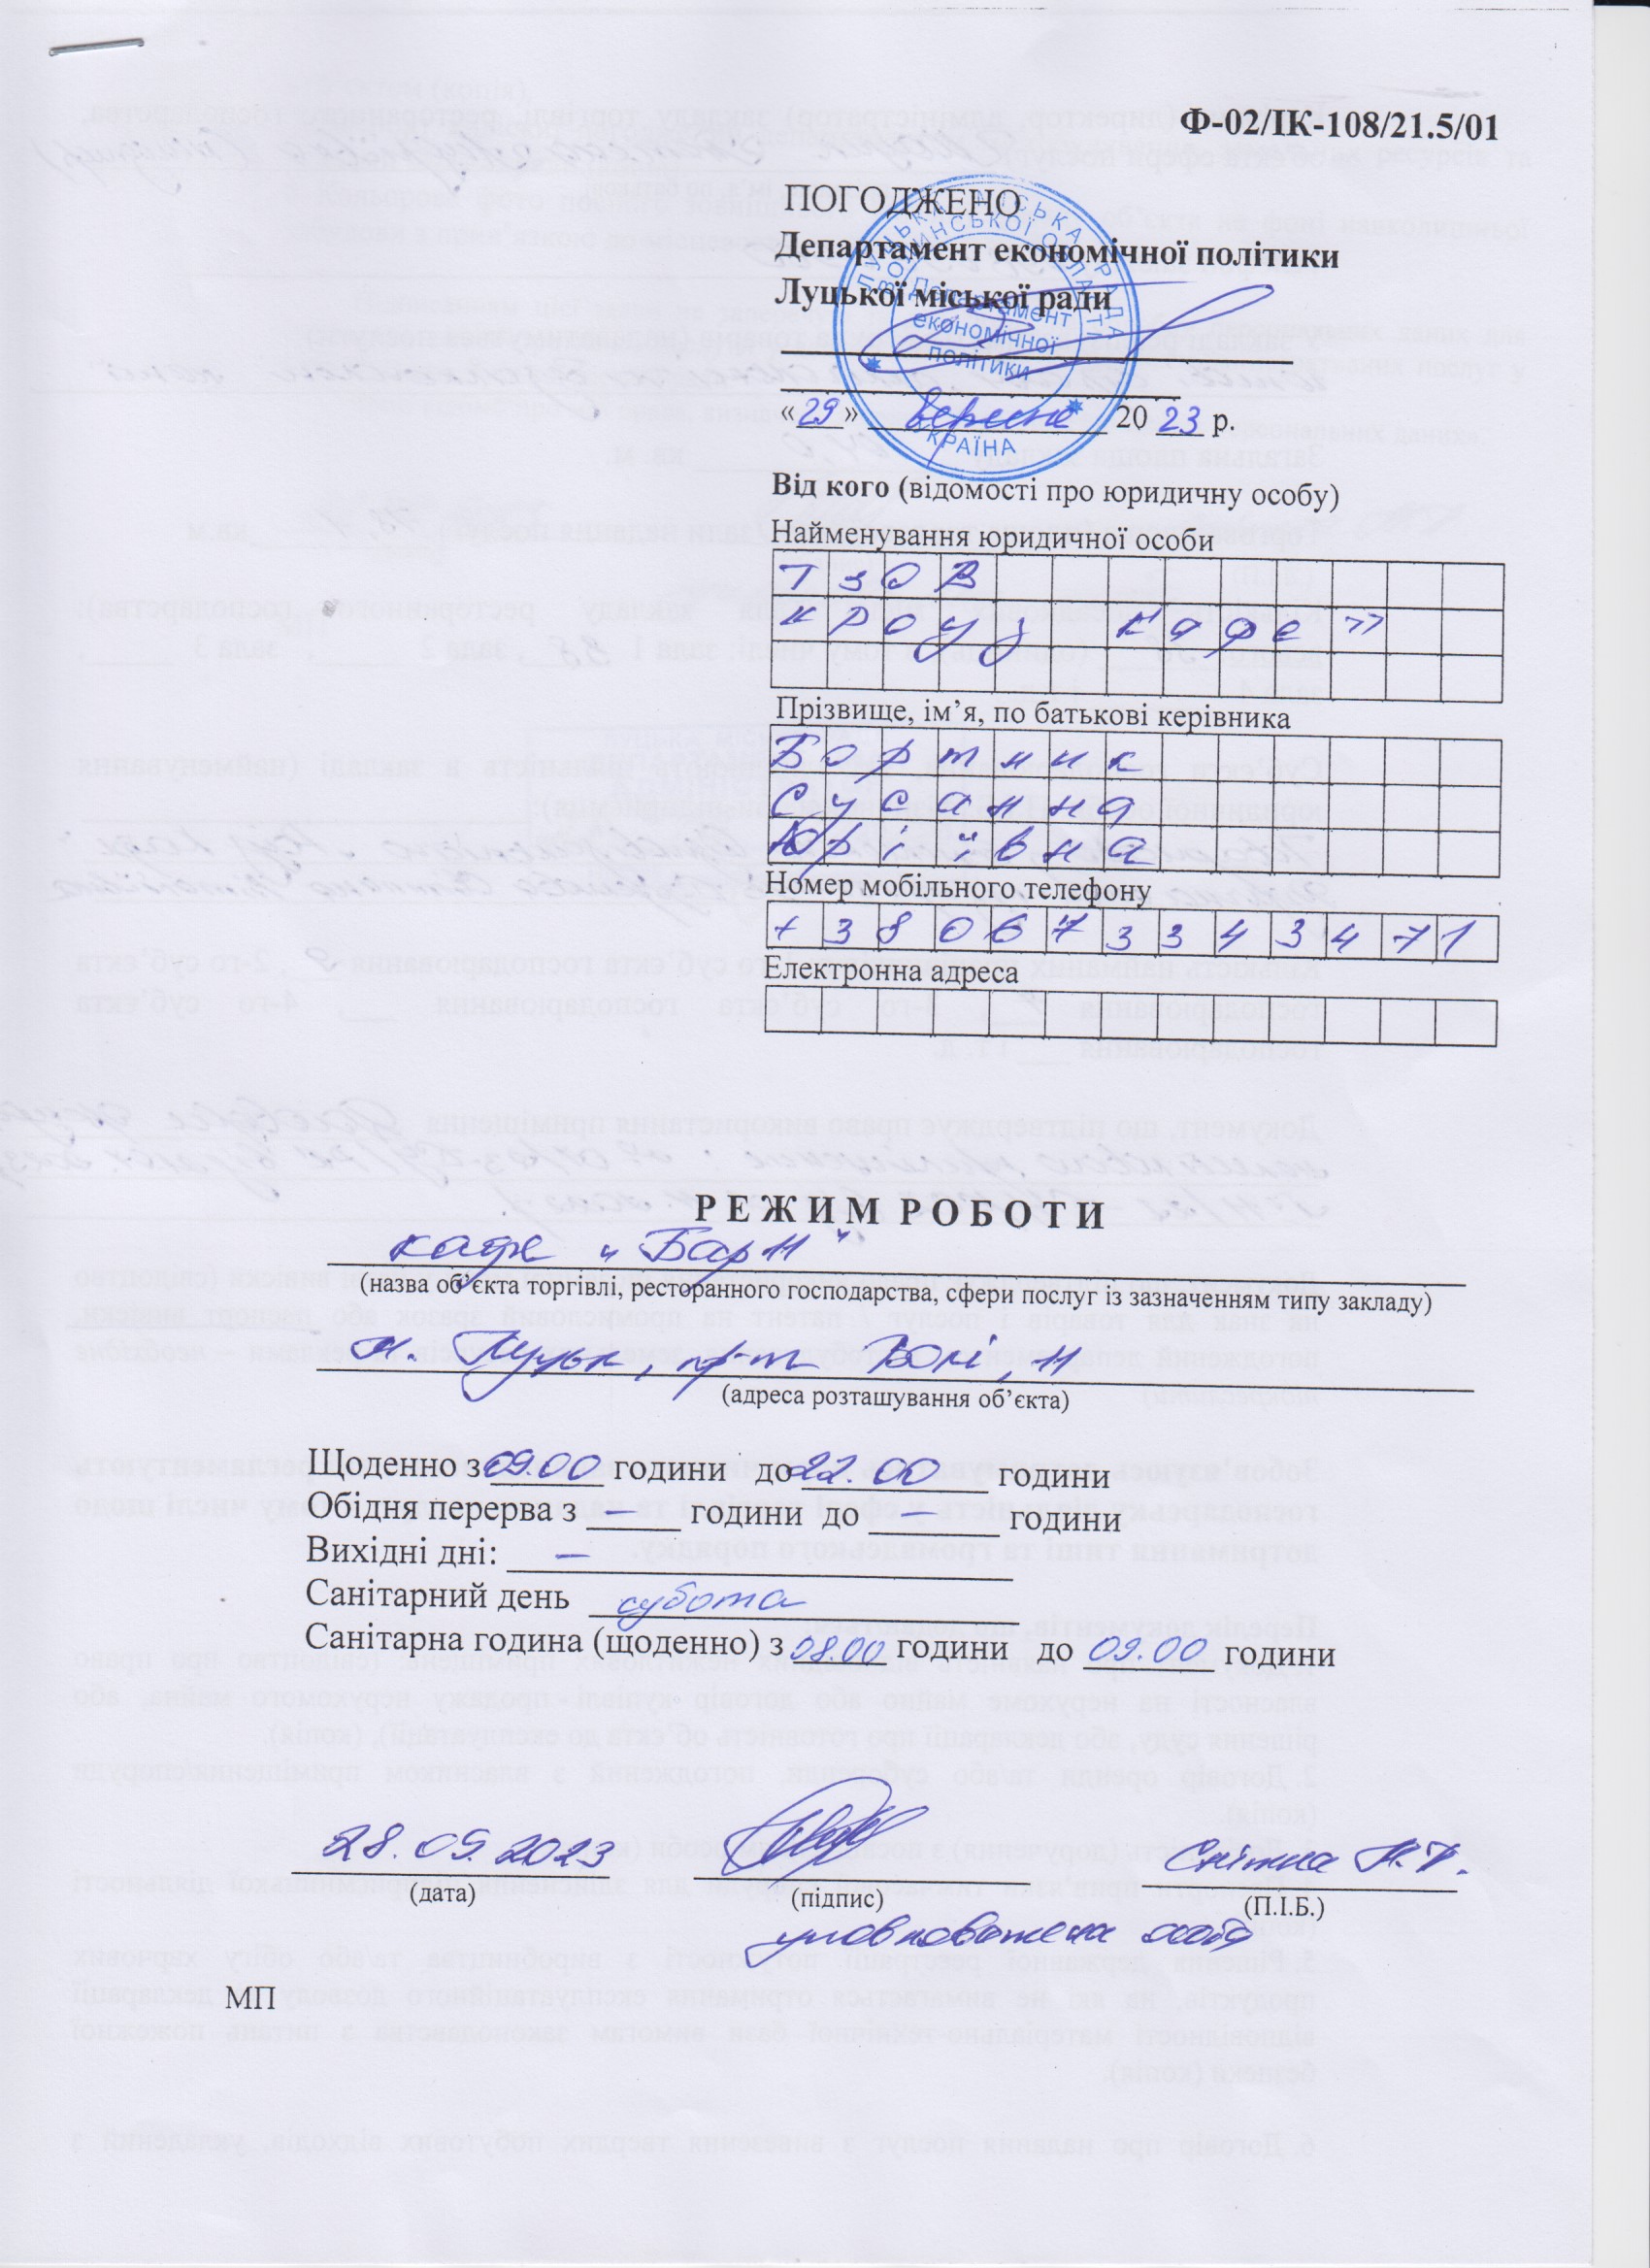 Ф-02/ІК-108/21.5/01
ПОГОДЖЕНО
Департамент економічної політики
Луцької міської ради
ЛУЦЬКА МІСЬКА РАДА
ВОЛИНСЬКОЇ ОБЛАСТІ
Департамент
економічної
політики
УКРАЇНА
«29» вересня 2023 р.
Від кого (відомості про юридичну особу)
Найменування юридичної особи
ТзОВ
Кроуз Кафе»
Прізвище, ім’я, по батькові керівника
Бортник
Сусанна
Юріївна
Номер мобільного телефону
+380673343471
Електронна адреса
РЕЖИМ РОБОТИ
кафе "Бар Н"
(назва об’єкта торгівлі, ресторанного господарства, сфери послуг із зазначенням типу закладу)
м. Луцьк, пр-т Волі,
(адреса розташування об’єкта)
Щоденно з 09.00 години до 22.00 години
Обідня перерва з — години до — години
Вихідні дні: —
Санітарний день субота
Санітарна година (щоденно) з 08.00 години до 09.00 години
28.09.2023
(дата) (підпис) (П.І.Б.)
уповноважена особа
МП